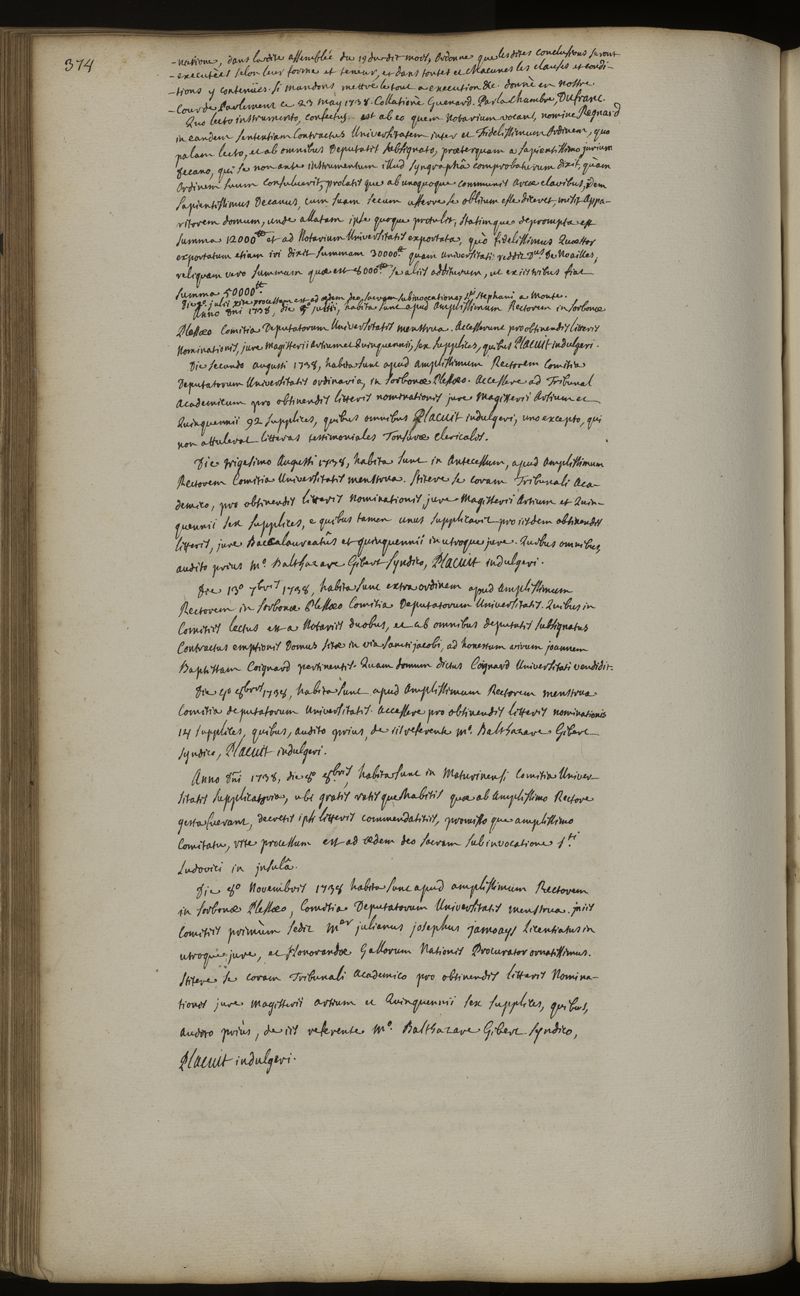 374
-natione, dans ladite assemblée du 19 dudit mois, Ordonne que lesdites conclusions seront
-executées selon leur forme et teneur, et dans toutes et chacunes les clauses et condi-
-tions y contenües. Si mandons mettre le tout a execution &c. donné en nostre
-Cour de Parlement ce 23 may 1738. Collationé Guenard. Par la Chambre, Dufranc.
Quo lecto instrumento, confectus est ab eo quem Notarium vocant, nomine Regnard
in eandem sententiam Contractus Universitatem inter et Fidelissimum Ordinem, quo
palam lecto, et ab omnibus Deputatis subsignato, praeterquam a sapientissimo jurium
Decano, qui se non ante instrumentum illud syngraphâ comprobaturum dixit, quàm
Ordinem suum consuluerit; prolatis que ab unoquoque communis Arcae clavibus, Dem
sapientissimus Decanus, cum suam secum afferre se oblitum esse diceret, misit Appa-
ritorem domum, unde allatam ipse quoque protulit; statimque deprompta est
summa 12000tt et ad Notarium Universitatis exportata, quò fidelissimus Quaestor
exportatum etiam iri dixit summam 30000tt quam Universitati reddit Dus De Noailles,
reliquam vero summam quae est 8000tt se aliis additurum, ut ex iis tribus fiat
summa 50000tt.
Die 2a julii rite processum est ad aedem deo sacram sub invocatione sti stephani a Monte.
Anno dni 1738, die 5o julii, habita sunt apud Amplissimum Rectorem in sorbonae
Plessaeo Comitia Deputatorum Universitatis menstrua. Accesserunt pro obtinendis litteris
Nominationis, jure Magisterii Artium et Quinquennii, sex supplices, quibus Placuit indulgeri.
Die secundo augusti 1738, habita sunt apud amplissimum Rectorem Comitia
Deputatorum Universitatis ordinaria, in sorbonae Plessaeo. Accessere ad Tribunal
Academicum pro obtinendis litteris nominationis jure Magisterii Artium et
Quinquennii 92 supplices, quibus omnibus Placuit indulgeri, uno excepto, qui
non attulerat litteras testimoniales Tonsurae clericalis.
Die trigesimo Augusti 1738, habita sunt in Antecessum, apud Amplissimum
Rectorem Comitia Universitatis menstrua. Stitere se coram Tribunali Aca-
demico, pro obtinendis litteris Nominationis jure Magisterii Artium et Quin-
quennii sex supplices, e quibus tamen unus supplicavit pro iisdem obtinendis
litteris, jure Baccalaureatûs et quinquennii in utroque jure. Quibus omnibus,
audito prius Mo. Balthazare Gibert Syndico, Placuit indulgeri.
Die 13o 7bris 1738, habita sunt extra ordinem apud Amplissimum
Rectorem in sorbonae Plessaeo Comitia Deputatorum Universitatis. Quibus in
Comitiis lectus est a Notariis duobus, et ab omnibus deputatis subsignatus
Contractus emptionis Domus sitae in via sancti jacobi, ad honestum virum joannem
Baptistam Coignard pertinentis. Quam domum dictus Coignard Universitati vendidit.
Die 4o 8bris 1738, habita sunt apud Amplissimum Rectorem menstrua
Comitia deputatorum Universitatis. Accessere pro obtinendis litteris nominationis
14 supplices, quibus, audito prius, de iis referente Mo. Balthazare Gibert
syndico, Placuit indulgeri.
Anno dni 1738, die 8o 8bris, habita sunt in Maturinensi Comitia Univer-
sitatis supplicatoria, ubi gratis ratisque habitis quae ab Amplissimo Rectore
gesta fuerant, decretis ipsi litteris commendatitiis, promisso que amplissimo
Comitatu, rite processum est ad aedem deo sacram sub invocatione sti.
Ludovici in jnsulâ.
Die 8o Novembris 1738 habita sunt apud amplissimum Rectorem
in sorbonae Plessaeo, Comitia Deputatorum Universitatis menstrua. jn iis
Comitiis primùm sedit Mer julianus josephus Jamoays Licentiatus in
utroque jure, et Honorandae Gallorum Nationis Procurator ornatissimus.
Stitere se coram Tribunali Academico pro obtinendis litteris Nomina-
tionis jure Magisterii artium et Quinquennii sex supplices, quibus,
audito priùs, de iis referente Mo. Balthazare Gibert syndico,
Placuit indulgeri.